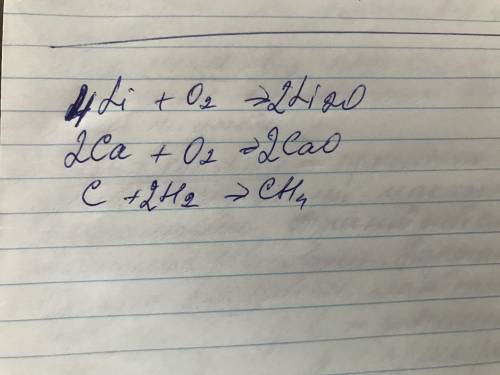 4Li + O2 → 2Li2O
2Ca + O2 → 2CaO
C + 2H2 → CH4